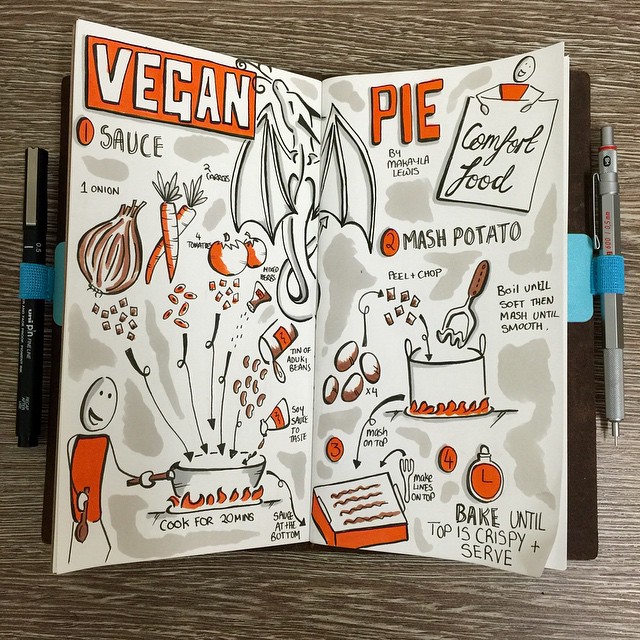 VEGAN
1 SAUCE
1 ONION
2 CARROTS
4
TOMATOES
MIXED
HERBS
TIN OF
ADUKI
BEANS
SOY
SAUCE
TO
TASTE
COOK FOR 20 MINS
SAUCE
AT THE
BOTTOM
PIE
BY
MAKAYLA
LEWIS
Comfort
food
2 MASH POTATO
PEEL + CHOP
BOIL UNTIL
SOFT THEN
MASH UNTIL
SMOOTH.
x4
mash
on top
3
make
LINES
ON TOP
4
BAKE UNTIL
TOP IS CRISPY +
SERVE
0.5
uni pin FINE LINE
600 / 0.5 mm